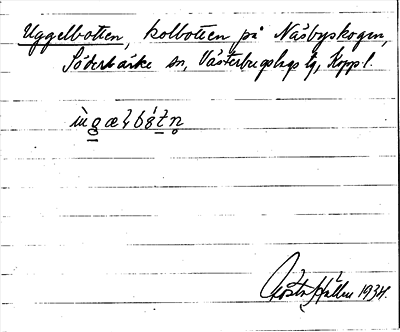 Uggelbotten, kolbotten på Näsbyskogen,
Söderbärke sn, Västerbergslags tg, Koppl.
Gösta Hallin 1934.